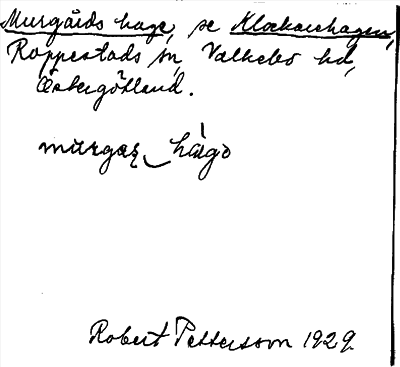 Murgårds hage, se Klockarehagen,
Rappestads sn, Valkebo hd,
Östergötland.
murgaṣ hàgǝ
Robert Pettersson 1929.